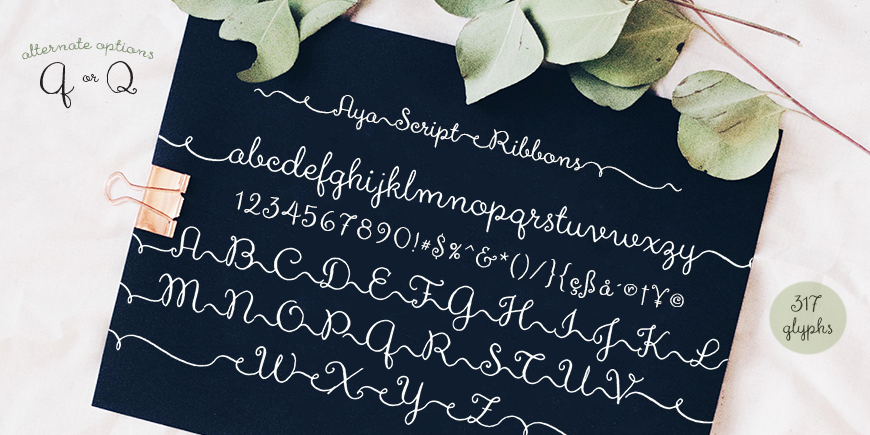 alternate options
Q or Q
Aya Script Ribbons
abcdefghijklmnopqrstuvwxzy
1234567890!#$%^&*()/}{şßå´®†¥©
ABCDEFGHIJKL
MNOPQRSTUV
WXYZ
317
glyphs